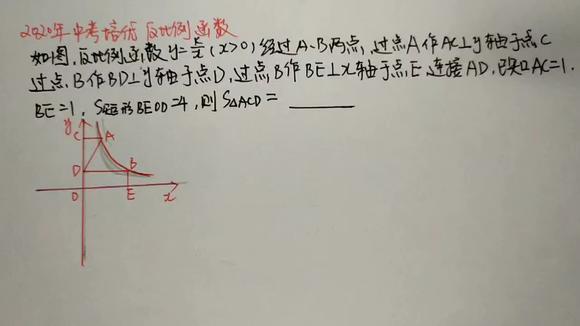 2020年中考培优 反比例函数
如图,反比例函数y=k/x(x>0)经过A、B两点,过点A作AC⊥y轴于点C
过点B作BD⊥y轴于点D,过点B作BE⊥x轴于点E,连接AD,已知AC=1.
BE=1,S矩形BEOD=4,则S△ACD=
y
C A
D B
O E x